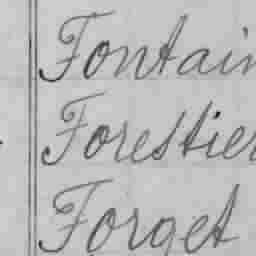 Fontain
Forestier
Forget